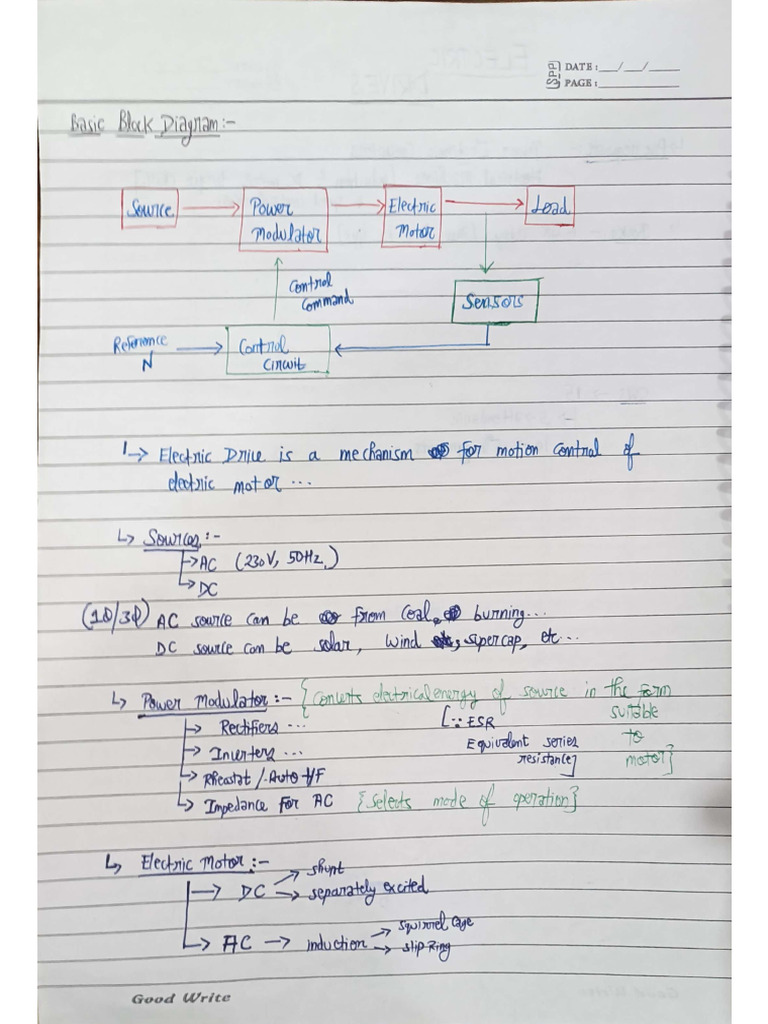 SPP
DATE: __/__/____
PAGE: ________
Basic Block Diagram:-
Source
Power Modulator
Electric Motor
Load
Control Command
Sensors
Reference N
Control Circuit
↳ Electric Drive is a mechanism for motion control of
electric motor ...
↳ Sources:-
→ AC (230V, 50Hz,)
→ DC
(1Φ/3Φ) AC source can be from Coal, burning...
DC source can be solar, Wind, supercap, etc...
↳ Power Modulator:- {Converts electrical energy of source in the form
suitable to motor}
→ Rectifiers ...
[∵ ESR
Equivalent series resistance]
→ Inverters ...
→ Rheostat/Auto t/F
→ Impedance for AC {selects mode of operation}
↳ Electric Motor:-
→ DC → shunt
→ separately excited
→ AC → induction → squirrel cage
→ slip Ring
Good Write